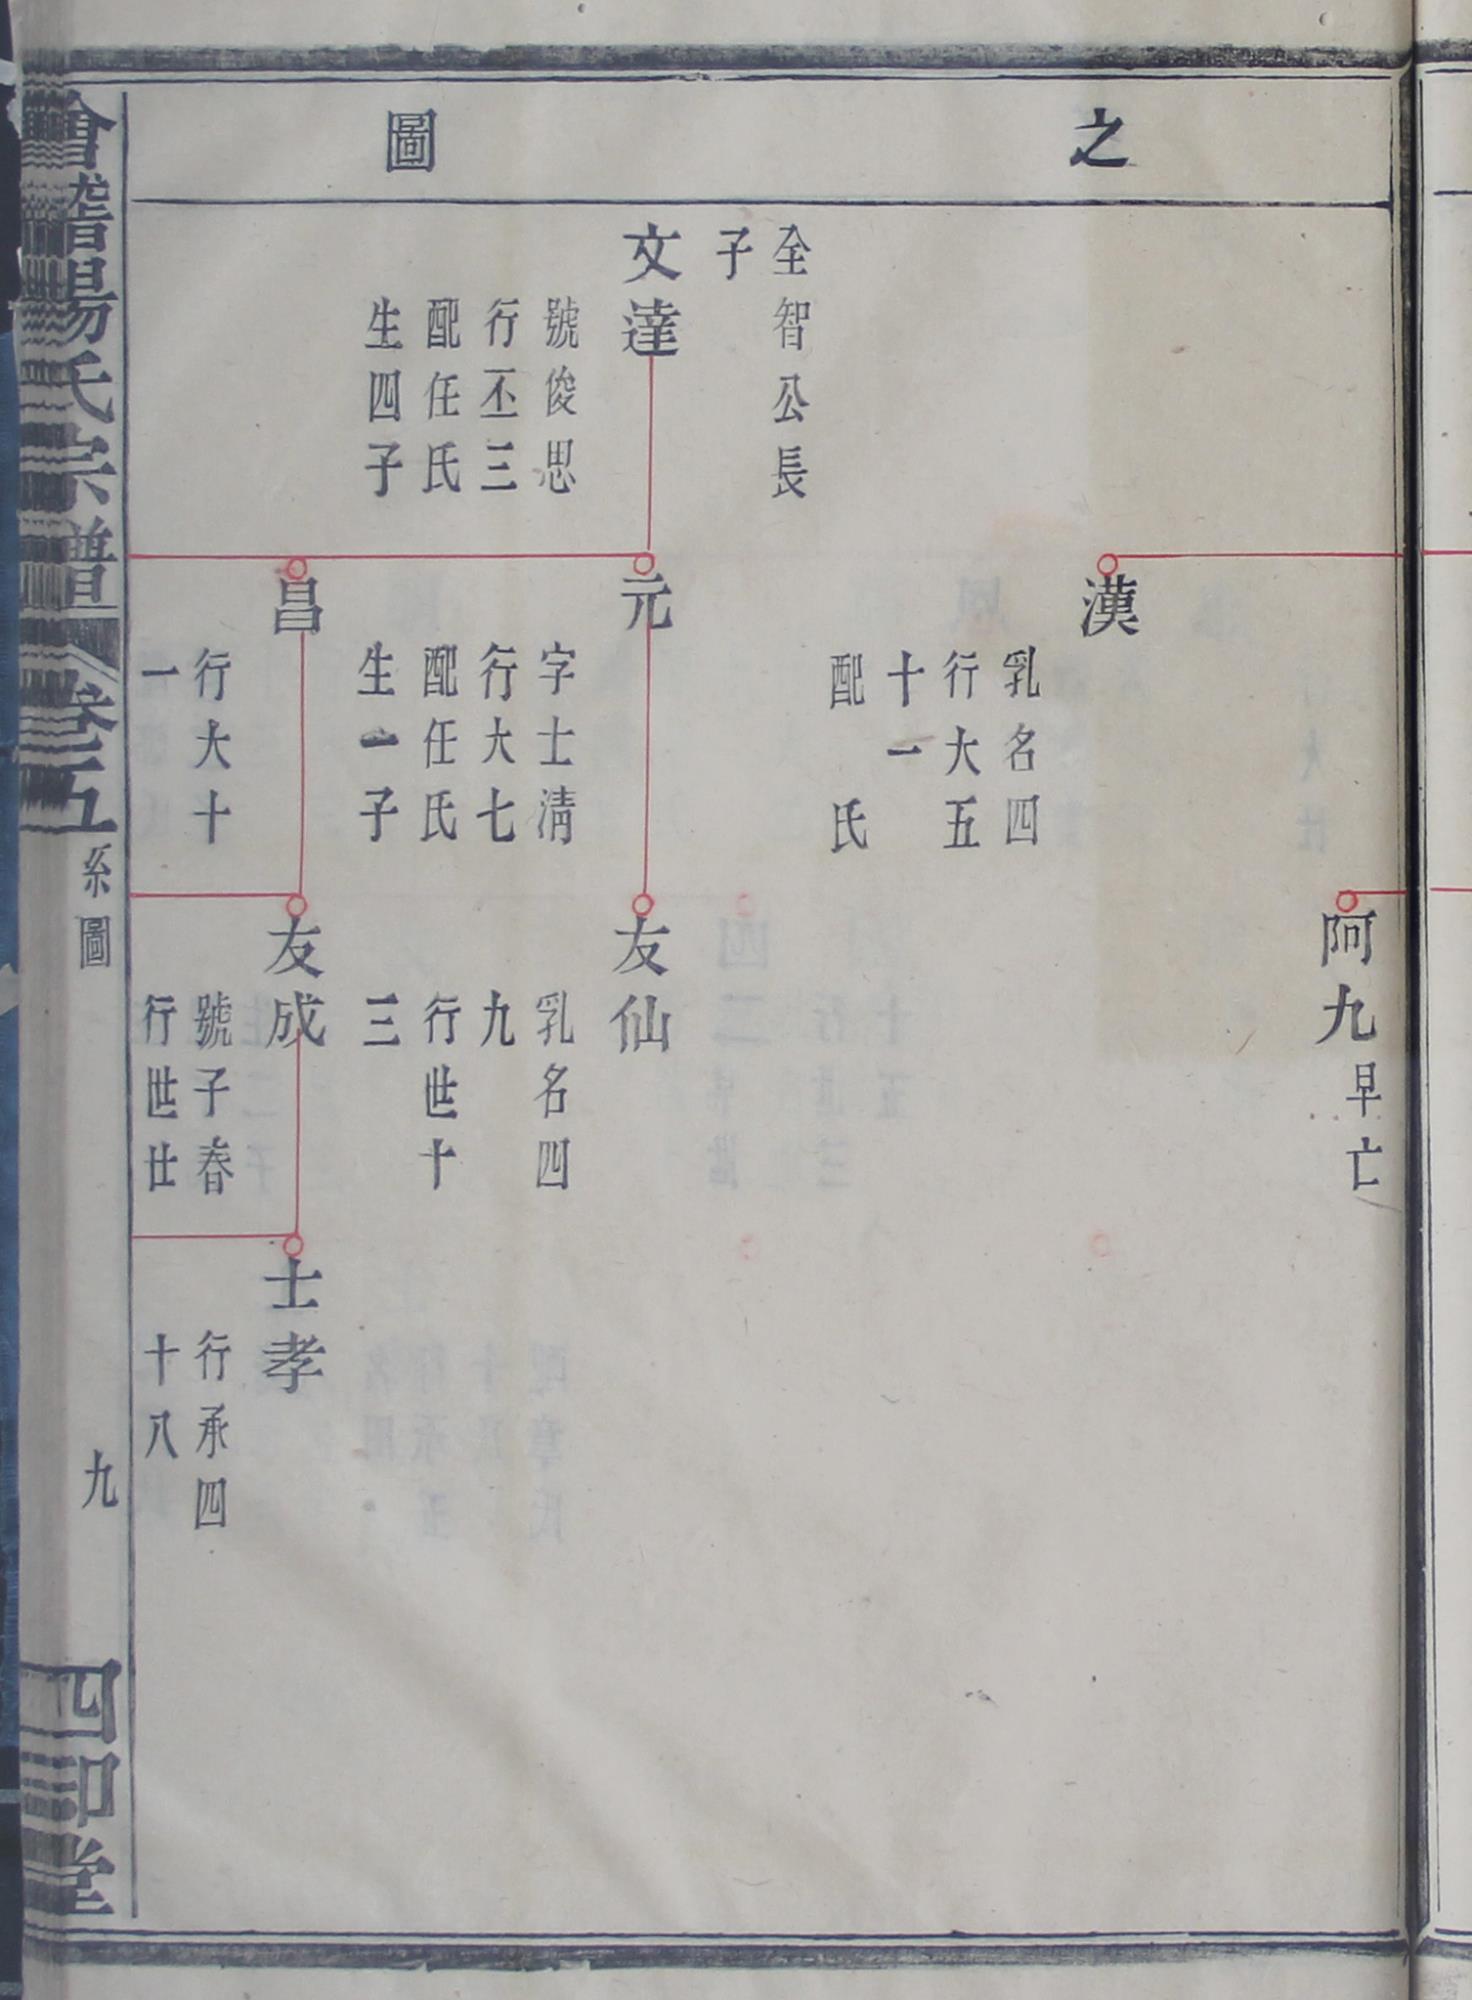 之
圖
阿九
早亡
漢
乳名四
行大五
十一
配　氏
全智公長
子
文達
號俊思
行丕三
配任氏
生四子
元
字士淸
行大七
配任氏
生一子
友仙
乳名四
九
行世十
三
昌
行大十
一
友成
號子春
行世廿
士孝
行承四
十八
會稽暘氏宗譜
卷五
系圖
九
四印堂